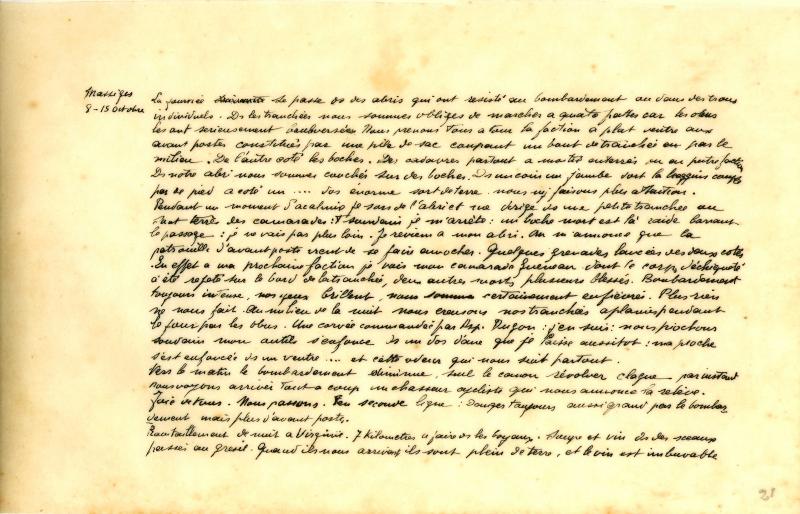 Massiges
8-15 Octobre
La journée se passe ds des abris qui ont résisté au bombardement ou dans des trous
individuels. Ds les tranchées nous sommes obligés de marcher a quatre pattes car les obus
les ont serieusement bouleversées Nous prenons tous a tour la faction à plat ventre aux
avant postes constitués par une pile de sac coupant un bout de tranchée en par le
milieu. De l'autre coté les boches. Des cadavres partout a moitié enterrés ou en putrefaction
Ds notre abri nous sommes couchés sur des boches. Ds un coin un jambe sort le
par es pied a coté un .... dos énorme sort de terre. nous n'y faisons plus attention.
Pendant un moment d'acalmie je sors de l'abri et me dirige ds une petite tranchée ou
sont terrés des camarades: soudain je m'arrête: un boche mort est là raide barrant
le passage: je ne vais pas plus loin. Je reviens a mon abri. On m'annonce que la
patrouille d'avant poste vient de se faire amocher. Quelques grenades lancées des deux cotés
En effet a ma prochaine faction je vois mon camarade Guereneau dont le corps déchiqueté
a été rejeté sur le bord de la tranchée, deux autres morts, plusieurs blessés. Bombardement
toujours intense, nos yeux brillent, nous sommes certainement enfiévrés. Plus rien
ne nous fait. Au milieu de la nuit nous creusons nos tranchées aplanies pendant
le jour par les obus. Une corvée commandée par Asp. Dugon: j'en suis: nous piochons
soudain mon outil s'enfonce ds un dos d'ane que je laisse aussitot: ma pioche
s'est enfoncée ds un ventre .... et cette odeur qui nous suit partout.
Vers le matin le bombardement diminue, seul le canon révolver claque par instant
nous voyons arriver tout a coup un chasseur cycliste qui nous annonce la relève.
Joie de tous. Nous passons en seconde ligne: Danger toujours aussi grand par le bombar
dement mais plus d'avant poste.
Ravitaillement de nuit a Virginie. 7 kilometres a faire ds les boyaux. Soupe et vin ds des sceaux
passés au gresil. Quand ils nous arrivent ils sont plein de terre, et le vin est imbuvable
21